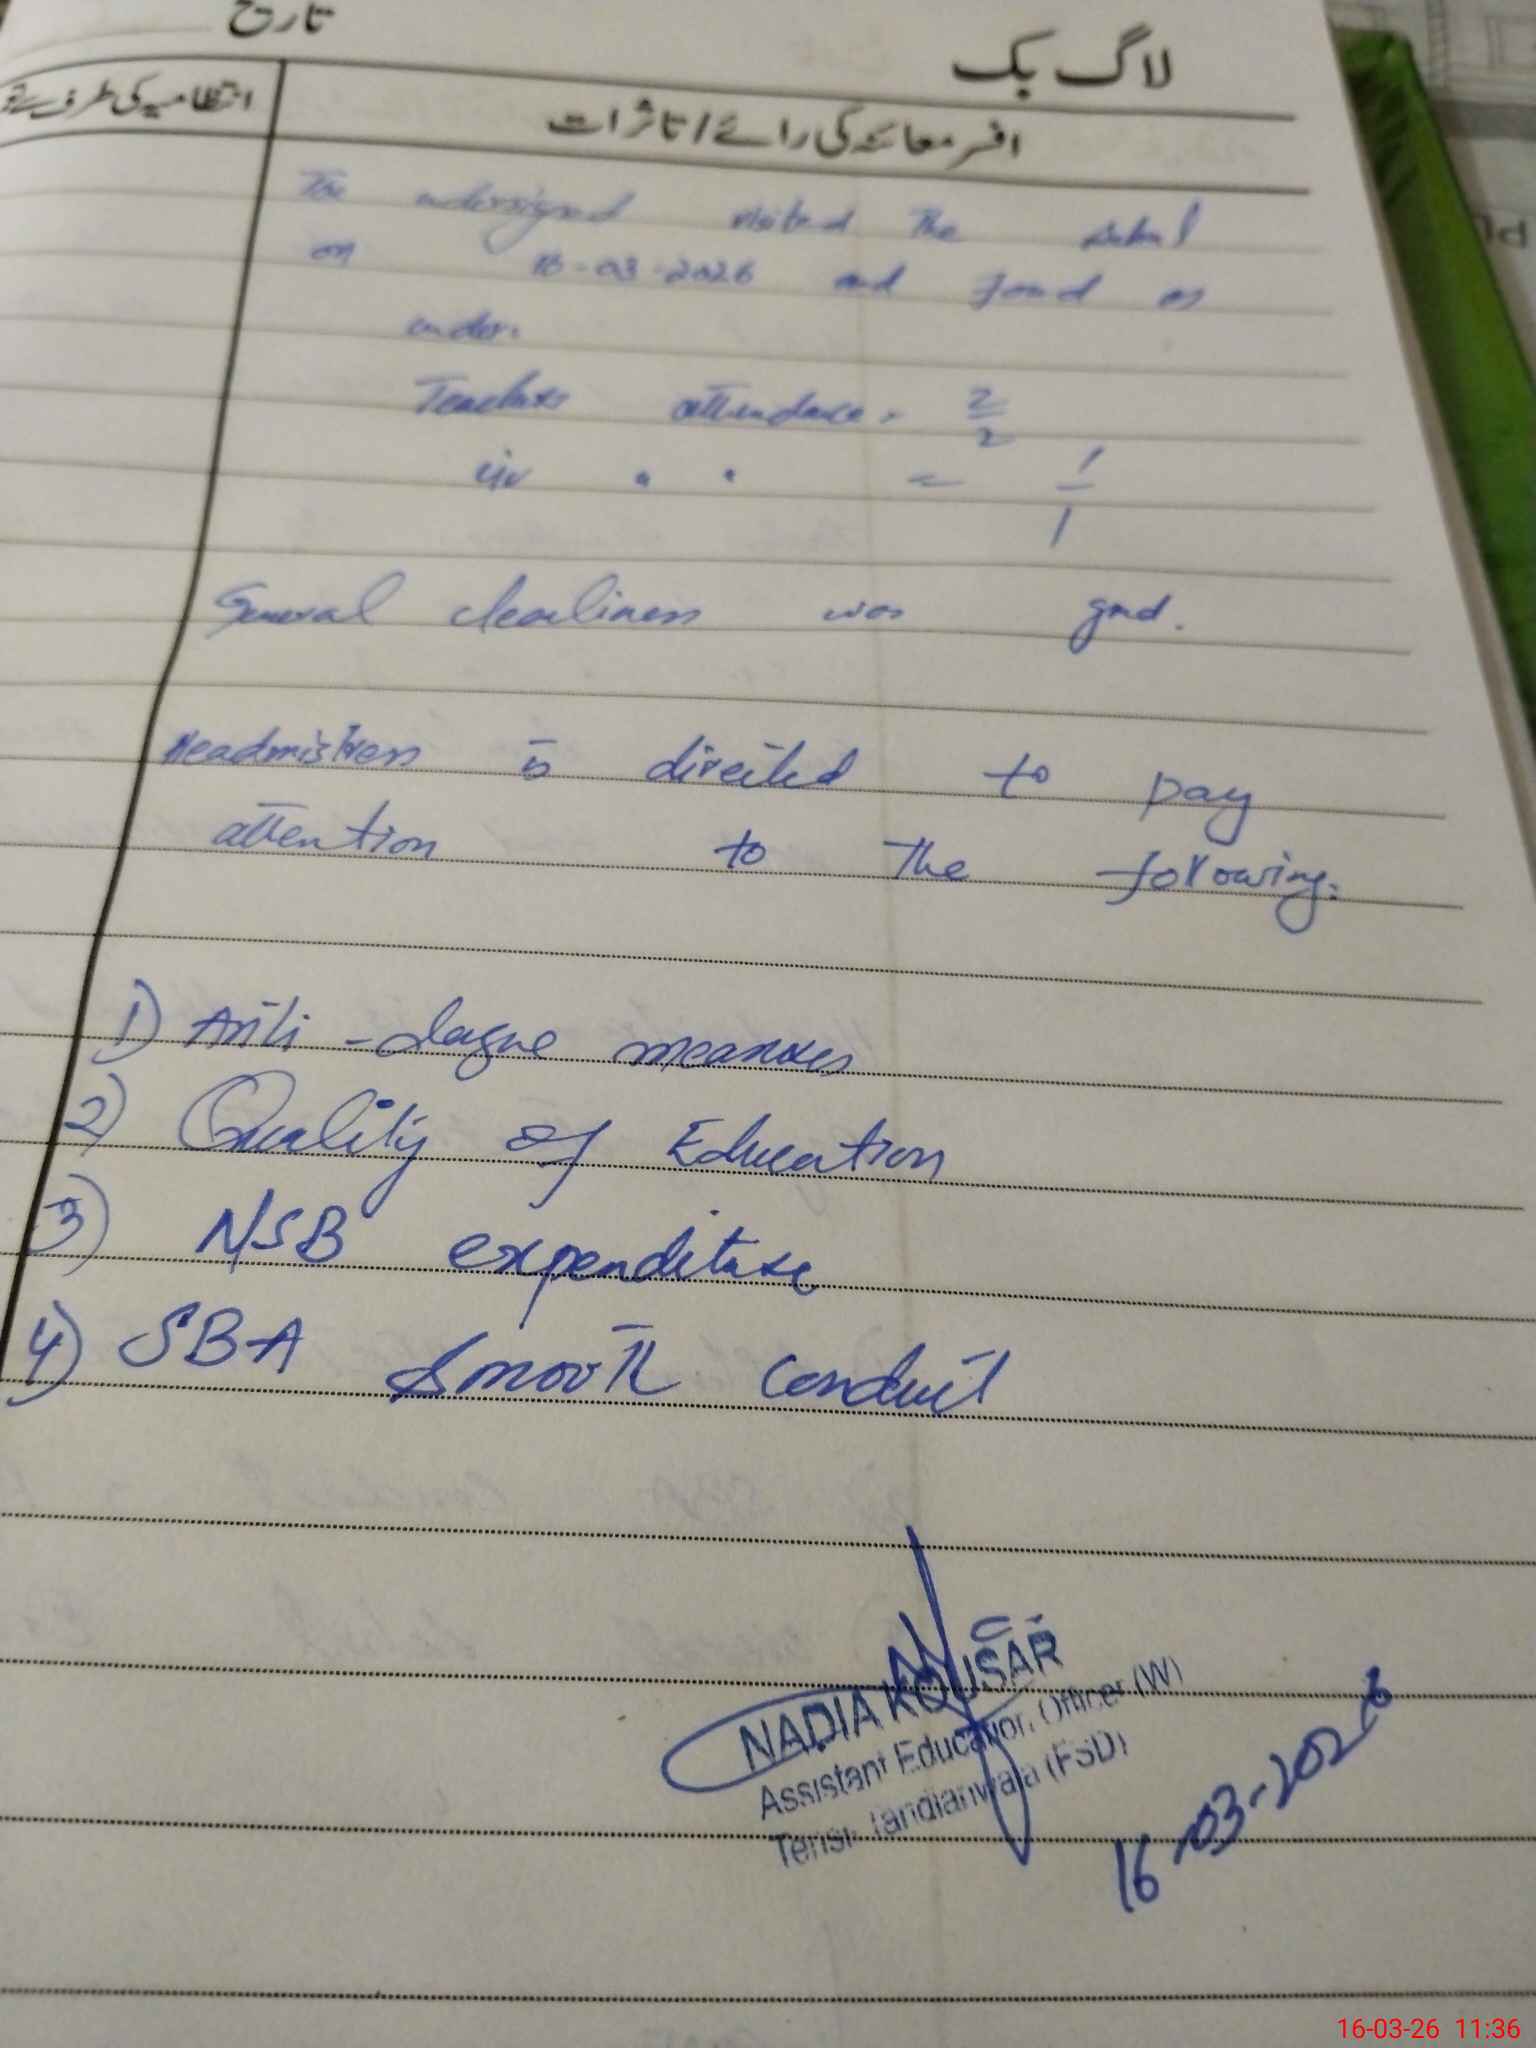 تاریخ
لاگ بک
انتظامیہ کی طرف سے
افسر معائنہ کی رائے / تاثرات
The undersigned visited the school
on 16-03-2026 and found as
under.
Teachers attendance = 2/2
" " = 1/1
General cleanliness was good.
Headmistress is directed to pay
attention to the following:
1) Anti-dengue measures
2) Quality of Education
3) NSB expenditure
4) SBA smooth conduct
NADIA KOUSAR
Assistant Education Officer (W)
Tehsil Tandlianwala (FSD)
16-03-2026
16-03-26 11:36